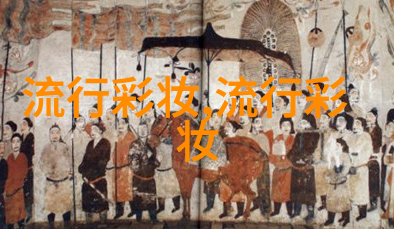 流行彩妆,流行彩
妆